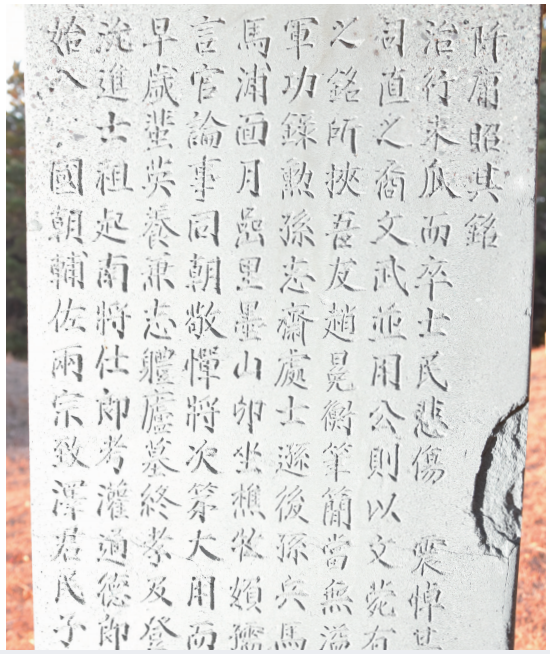 始入 國朝輔佐兩宗致澤君民子
沇進士祖起南將仕郎考灌通德郎
早歲蜚英養兼志軆廬墓終孝及登
言官論事同朝敬憚將次第大用而
馬浦面月嵒里墨山卯坐樵牧頻孺
軍功錄勲孫志齋處士遜後孫兵馬
之銘所挾吾友趙晃衡筆簡當無溢
司直之裔文武並用公則以文菀有
治行未瓜而卒士民悲傷 震悼其
阡庸昭其銘